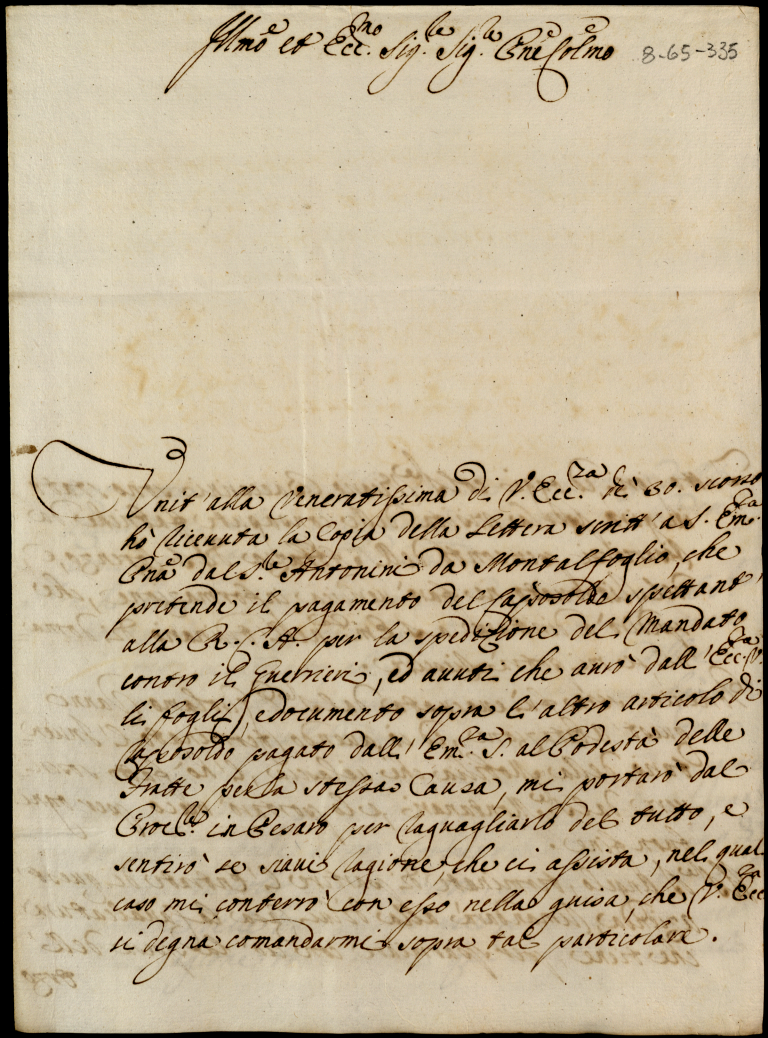 Illmo et Ecc.mo Sig.re Sig.re Pne Colmo 8-65-335
Unit'alla Veneratissima di V. Ecc.za dì 30. scorso
hò riceuuta la Copia della Lettera scritt'a S. Em.za
Pna dal S.re Antonini da Montalfoglio, che
pretende il pagamento del Caposoldo spettant'
alla R. C. A. per la spedizione del Mandato
contro il Guerrieri, ed auuti che aurò dall'Ecc.za V.
li fogli, e documento sopra l'altro articolo di
Caposoldo pagato dall'Em.a S. al Podestà delle
Fratte per la stessa Causa, mi portarò dal
in Pesaro per raguagliarlo del tutto, e
sentirò se siaui ragione, che ci assista, nel qual
caso mi conterrò con esso nella guisa, che V. Ecc.za
si degna comandarmi sopra tal particolare.